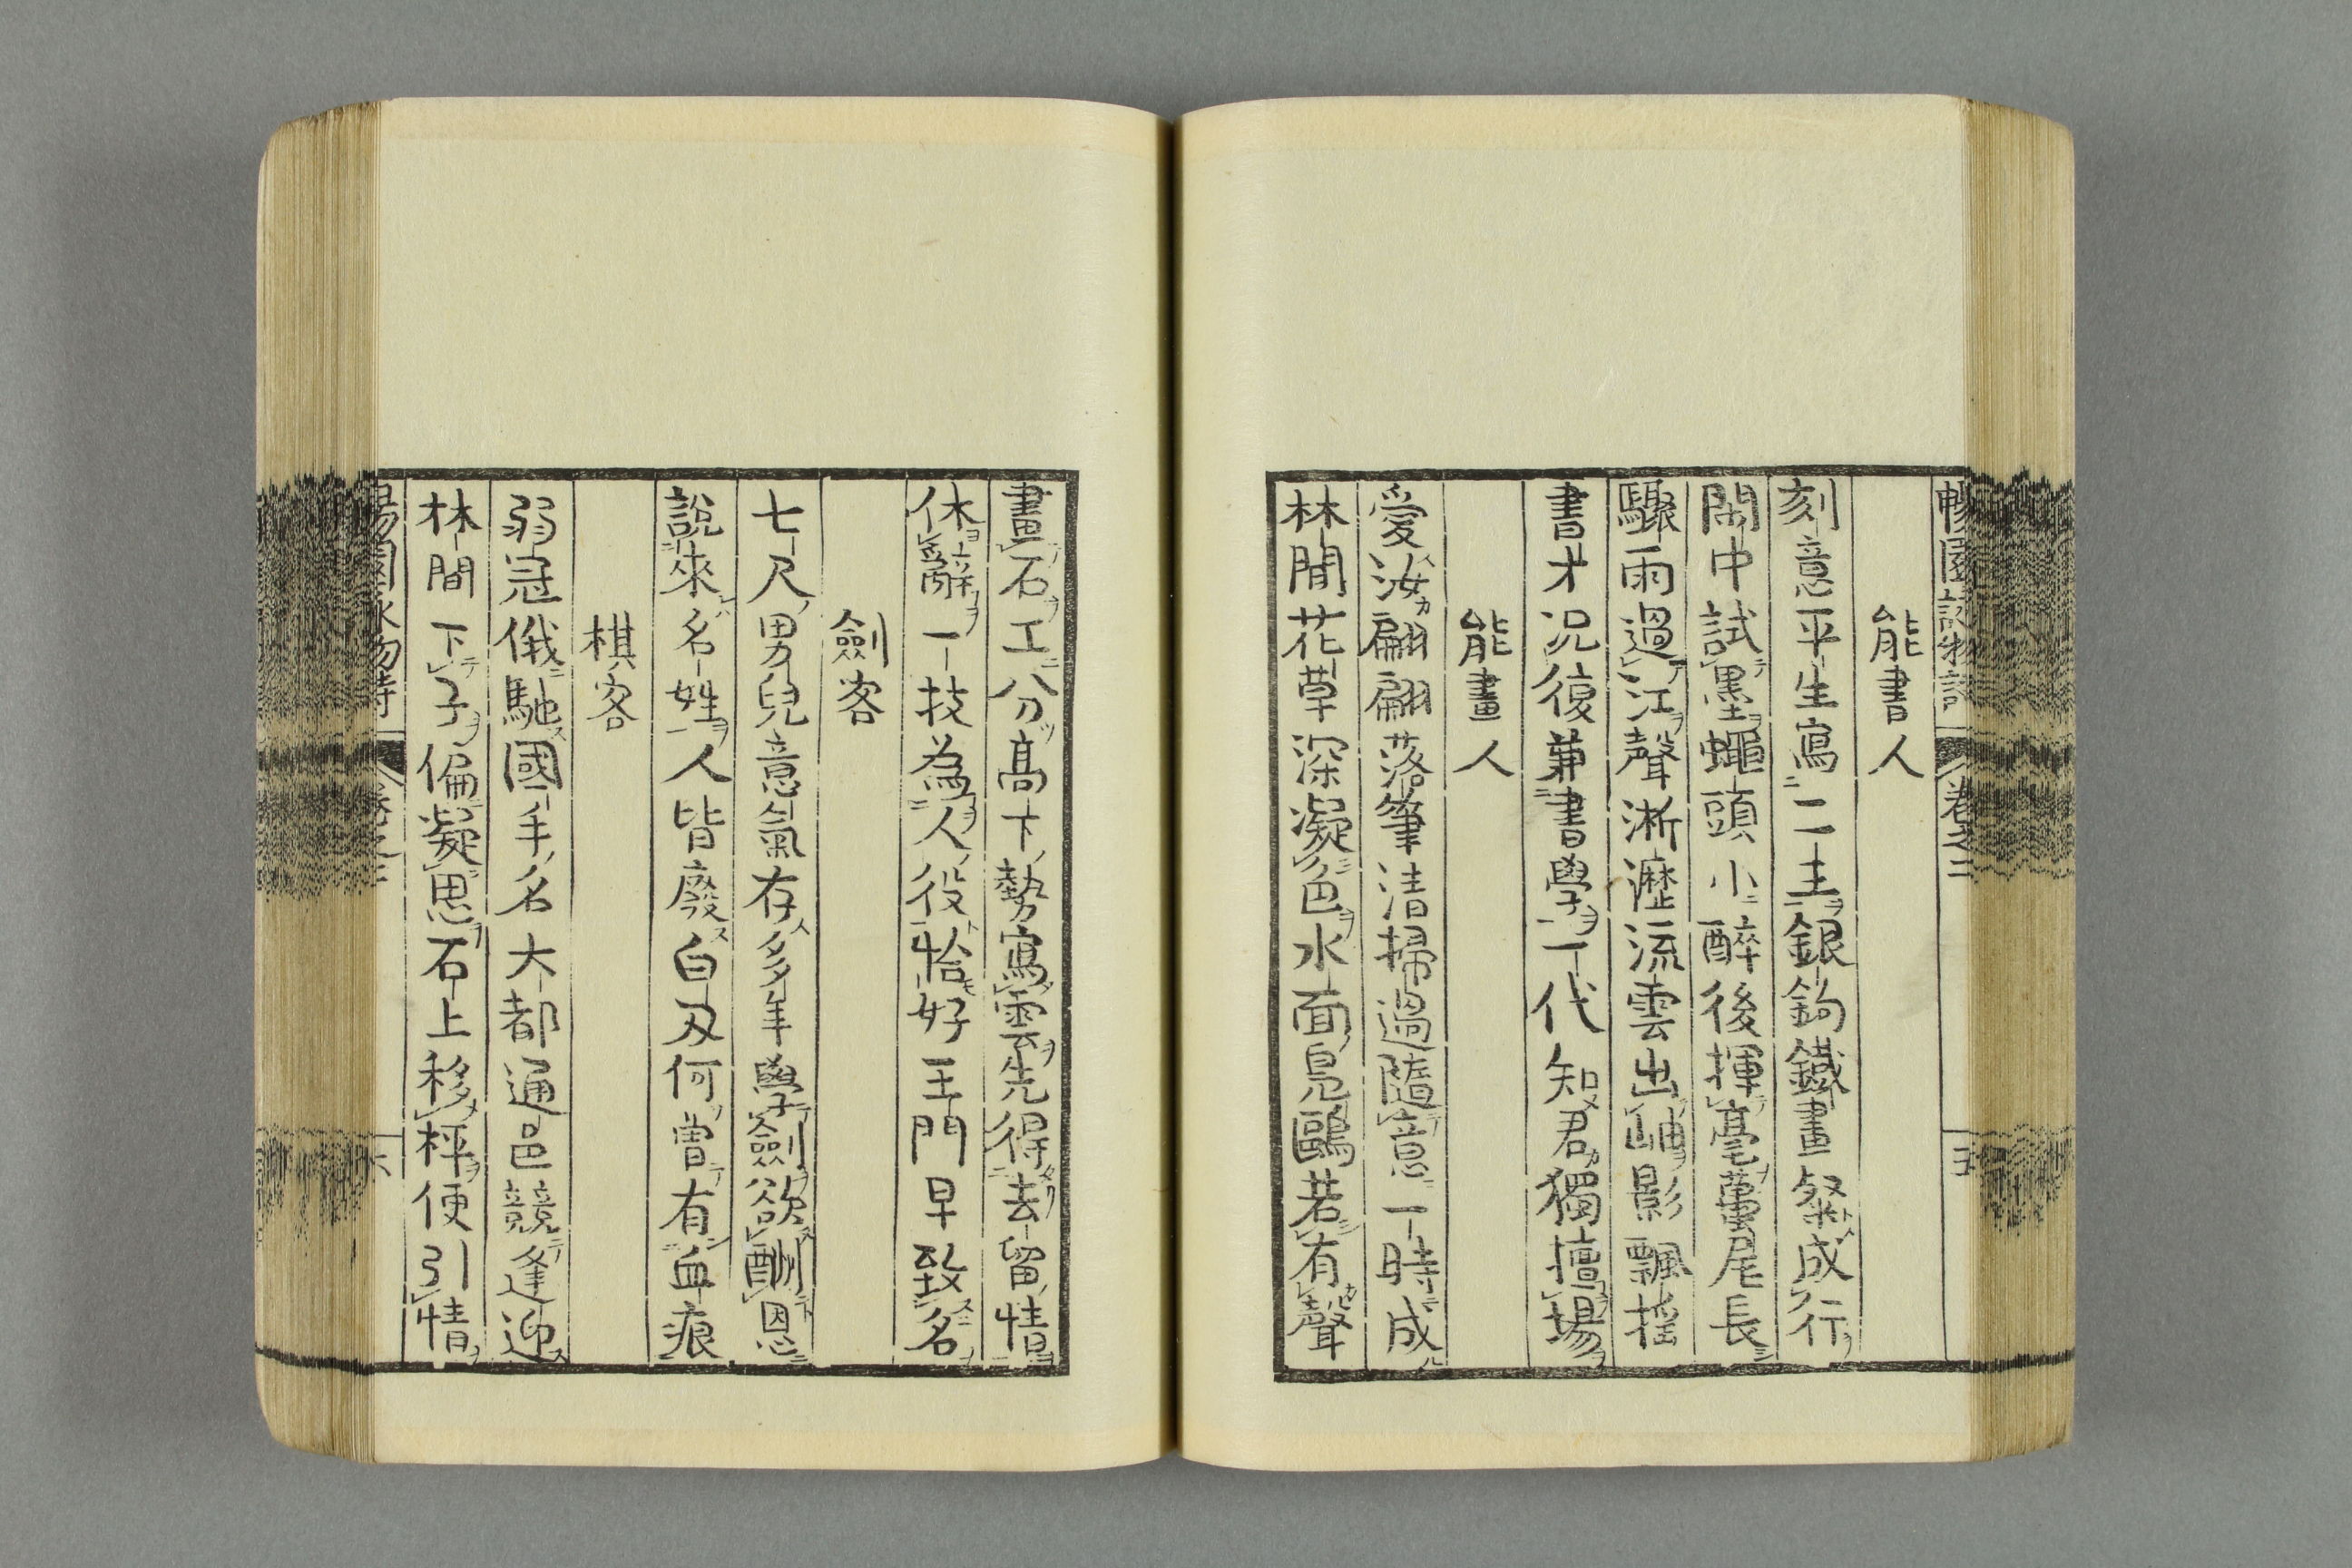 暢園詠物詩 卷之二 五
能書人
刻意平生寫二王銀鉤鐵畫粲成行
閑中試墨蠅頭小醉後揮毫蠆尾長
驟雨過江聲淅瀝流雲出岫影飄搖
書才況復兼書學一代知君獨擅場
能畫人
愛汝翩翩落筆清掃過隨意一時成
林間花草深凝色水面鳧鷗若有聲
畫石工分高下勢寫雲先得去留情
休辭一技為人役恰好王門早致名
劍客
七尺男兒意氣存多年學劍欲酬恩
說來名姓人皆廢白刃何曾有血痕
棋客
弱冠俄馳國手名大都通邑競逢迎
林間下子偏凝思石上移枰便引情
暢園詠物詩 卷之二 六